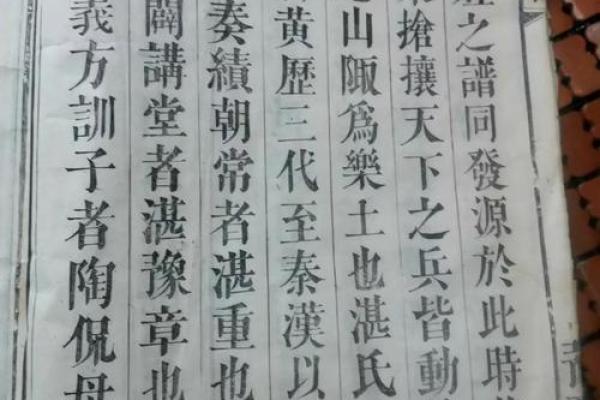 之譜同發源於此時
搶攘天下之兵皆動
山陬爲樂土也湛氏
黄歷三代至秦漢以
奏績朝常者湛重也
闢講堂者湛豫章也
義方訓子者陶侃母